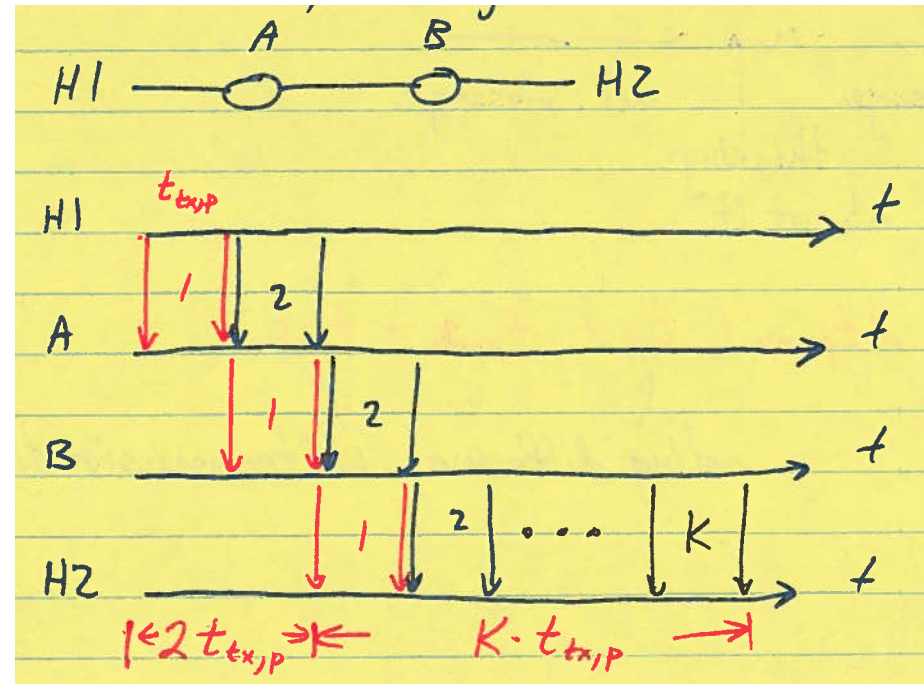 A B
H1 H2
t_tx,p
H1 t
1 2
A t
1 2
B t
1 2 .... K
H2 t
2 t_tx,p K · t_tx,p